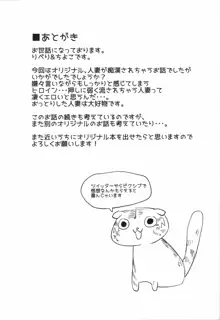 ■あとがき
お世話になっております。
りべり&ちよこです。
今回はオリジナル、人妻が痴漢されちゃうお話でしたが
いかがでしたでしょうか?
嫌々言いながらもしっかりと感じてしまう
ヒロイン…押しに弱く流されちゃう人妻って
凄くエロいと思うんです。
おっとりした人妻は大好物です。
このお話の続きも考えているのですが、
また別のオリジナルのお話も考えています…!
また近いうちにオリジナル本を出せたらと思いますので
よろしくお願いします!
ツイッターやらピクシブで
感想なんかもらえると
喜んじゃいます